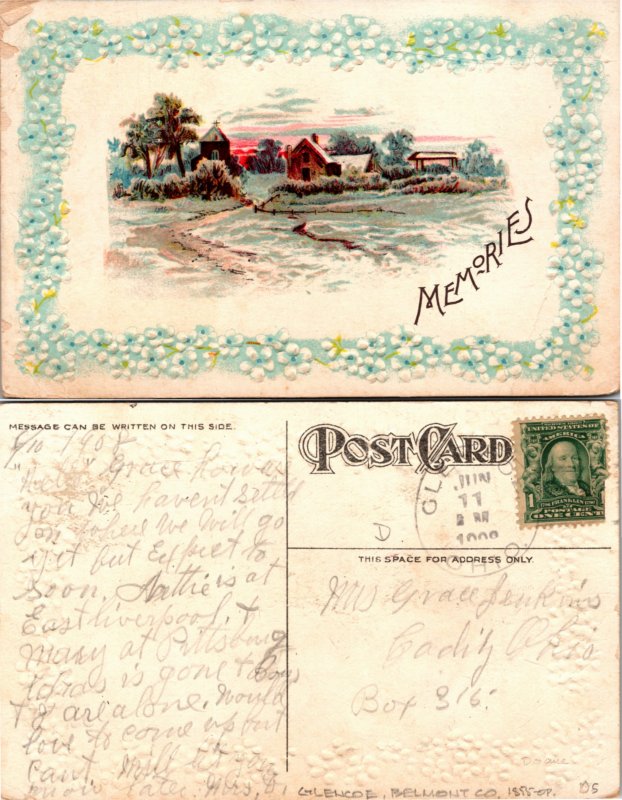 MEMORIES
MESSAGE CAN BE WRITTEN ON THIS SIDE.
POST CARD
6/10 1908
"Hello" Grace how are
you We havent settled
on where we will go
yet but Expect to
soon. Nettie is at
East liverpool, &
Mary at Pittsburg
is gone & boys
& I are alone. Would
love to come up but
cant. Will let you
know later. Mrs.
GL
JUN
11
1908
SERIES 1902
UNITED STATES OF
AMERICA
FRANKLIN
1
POSTAGE
ONE CENT
D
THIS SPACE FOR ADDRESS ONLY.
Mrs Grace Jenkins
Cadiz Ohio
Box 316
GLENCOE, BELMONT CO, 1855-OP.